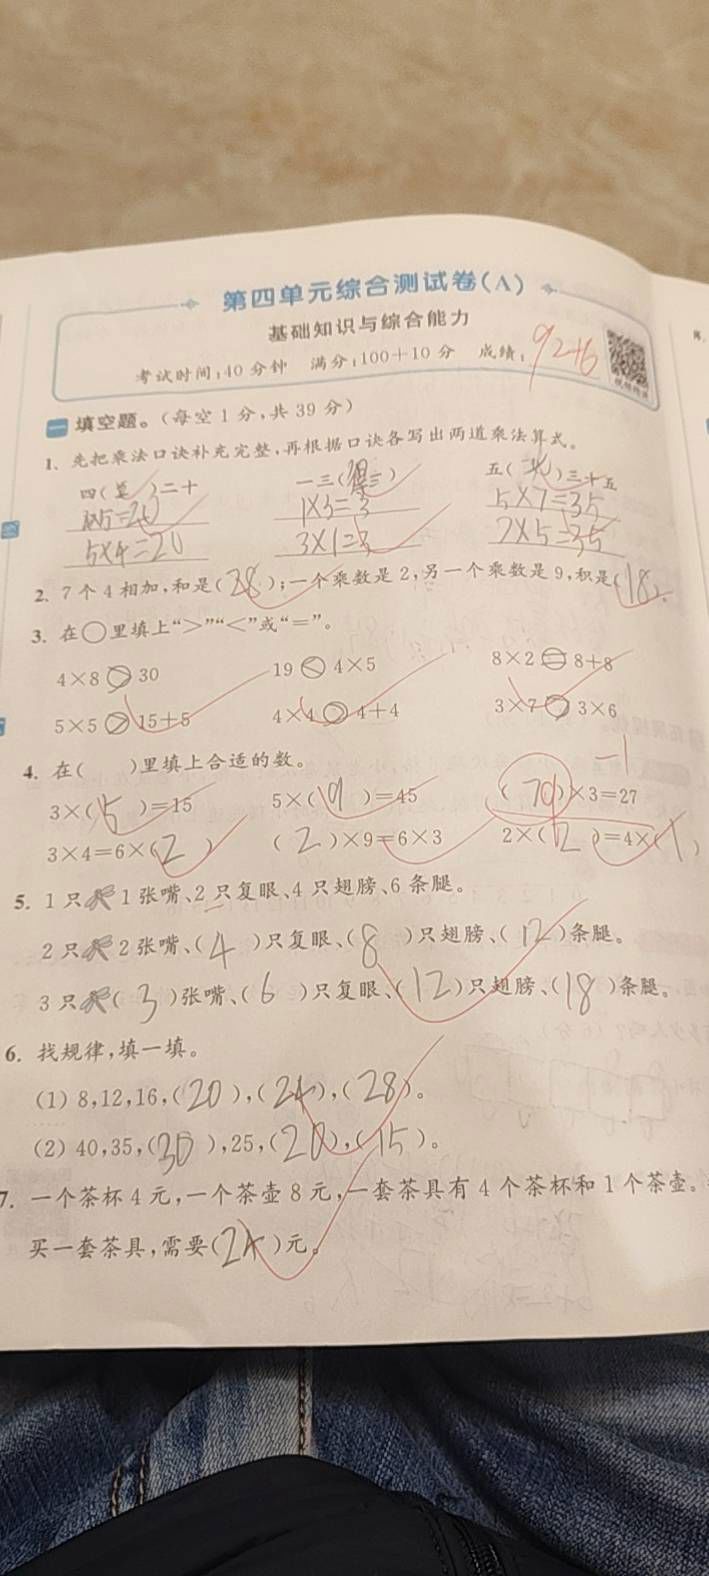 第四单元综合测试卷(A)
基础知识与综合能力
考试时间:40分钟 满分:100+10分 成绩: 92+6
一 填空题。(每空1分,共39分)
1. 先把乘法口诀补充完整,再根据口诀各写出两道乘法算式。
四( )二十 一三(得三) 五(七)三十五
4×5=20 1×3=3 5×7=35
5×4=20 3×1=3 7×5=35
2. 7个4相加,和是(28);一个乘数是2,另一个乘数是9,积是(18)。
3. 在○里填上“>”“<”或“=”。
4×8>30 19<4×5 8×2=8+8
5×5>15+5 4×4>4+4 3×7>3×6
4. 在( )里填上合适的数。 -1
3×(5)=15 5×(9)=45 ( )×3=27
3×4=6×(2) (2)×9=6×3 2×(2)=4×(1)
5. 1只 1张嘴、2只复眼、4只翅膀、6条腿。
2只 2张嘴、(4)只复眼、(8)只翅膀、(12)条腿。
3只 (3)张嘴、(6)只复眼、(12)只翅膀、(18)条腿。
6. 找规律,填一填。
(1) 8,12,16,(20),(24),(28)。
(2) 40,35,(30),25,(20),(15)。
7. 一个茶杯4元,一个茶壶8元,一套茶具有4个茶杯和1个茶壶。
买一套茶具,需要(24)元。